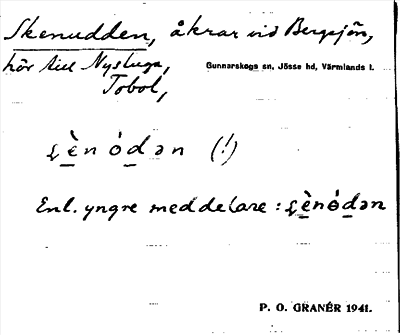 Skenudden, åkrar vid Bergsjön,
hör till Nystuga,
Gunnarskogs sn, Jösse hd, Värmlands l.
Tobol,
(!)
Enl. yngre meddelare:
P. O. GRANÉR 1941.